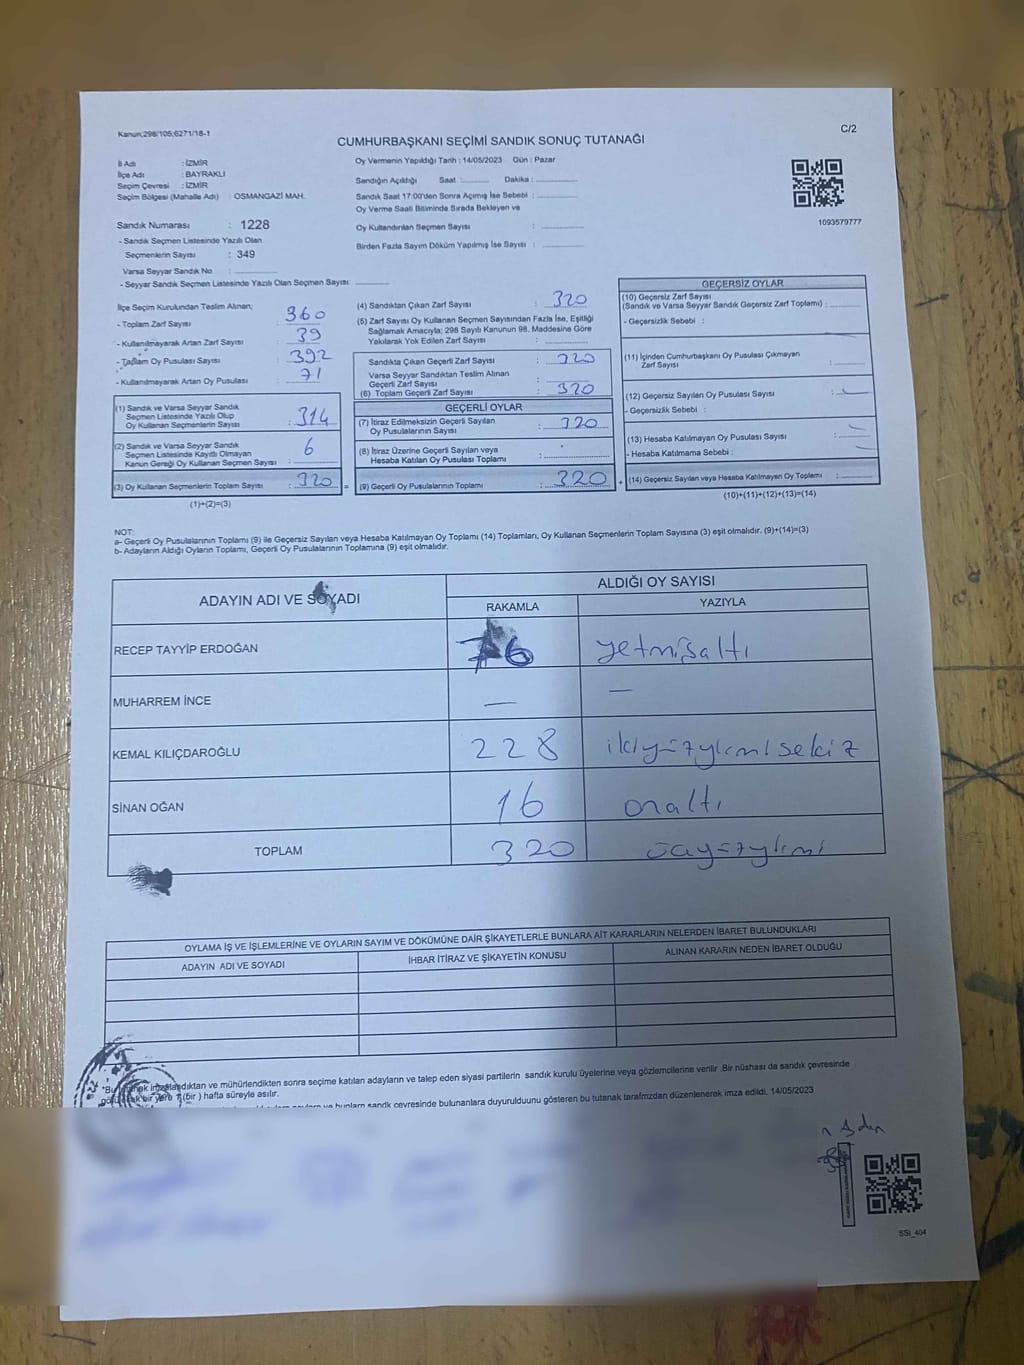 Kanun;298/105;6271/18-1
C/2
CUMHURBAŞKANI SEÇİMİ SANDIK SONUÇ TUTANAĞI
İl Adı : İZMİR
İlçe Adı : BAYRAKLI
Seçim Çevresi : İZMİR
Seçim Bölgesi (Mahalle Adı) : OSMANGAZİ MAH.
Sandık Numarası : 1228
- Sandık Seçmen Listesinde Yazılı Olan
Seçmenlerin Sayısı : 349
Varsa Seyyar Sandık No :
- Seyyar Sandık Seçmen Listesinde Yazılı Olan Seçmen Sayısı
Oy Vermenin Yapıldığı Tarih : 14/05/2023 Gün : Pazar
Sandığın Açıldığı Saat : Dakika :
Sandık Saat 17:00'den Sonra Açımış İse Sebebi :
Oy Verme Saati Bitiminde Sırada Bekleyen ve
Oy Kullandırılan Seçmen Sayısı :
Birden Fazla Sayım Döküm Yapılmış İse Sayısı :
1093579777
İlçe Seçim Kurulundan Teslim Alınan;
- Toplam Zarf Sayısı : 360
- Kullanılmayarak Artan Zarf Sayısı : 39
- Toplam Oy Pusulası Sayısı : 392
- Kullanılmayarak Artan Oy Pusulası : 71
(1) Sandık ve Varsa Seyyar Sandık
Seçmen Listesinde Yazılı Olup
Oy Kullanan Seçmenlerin Sayısı : 314
(2) Sandık ve Varsa Seyyar Sandık
Seçmen Listesinde Kayıtlı Olmayan
Kanun Gereği Oy Kullanan Seçmen Sayısı : 6
(3) Oy Kullanan Seçmenlerin Toplam Sayısı : 320 =
(1)+(2)=(3)
(4) Sandıktan Çıkan Zarf Sayısı : 320
(5) Zarf Sayısı Oy Kullanan Seçmen Sayısından Fazla İse, Eşitliği
Sağlamak Amacıyla; 298 Sayılı Kanunun 98. Maddesine Göre
Yakılarak Yok Edilen Zarf Sayısı :
Sandıkta Çıkan Geçerli Zarf Sayısı : 320
Varsa Seyyar Sandıktan Teslim Alınan
Geçerli Zarf Sayısı :
(6) Toplam Geçerli Zarf Sayısı : 320
GEÇERLİ OYLAR
(7) İtiraz Edilmeksizin Geçerli Sayılan
Oy Pusulalarının Sayısı : 320
(8) İtiraz Üzerine Geçerli Sayılan veya
Hesaba Katılan Oy Pusulası Toplamı :
(9) Geçerli Oy Pusulalarının Toplamı : 320 +
GEÇERSİZ OYLAR
(10) Geçersiz Zarf Sayısı
(Sandık ve Varsa Seyyar Sandık Geçersiz Zarf Toplamı) :
- Geçersizlik Sebebi :
(11) İçinden Cumhurbaşkanı Oy Pusulası Çıkmayan
Zarf Sayısı :
(12) Geçersiz Sayılan Oy Pusulası Sayısı :
- Geçersizlik Sebebi :
(13) Hesaba Katılmayan Oy Pusulası Sayısı :
- Hesaba Katılmama Sebebi :
(14) Geçersiz Sayılan veya Hesaba Katılmayan Oy Toplamı :
(10)+(11)+(12)+(13)=(14)
NOT:
a- Geçerli Oy Pusulalarının Toplamı (9) ile Geçersiz Sayılan veya Hesaba Katılmayan Oy Toplamı (14) Toplamları, Oy Kullanan Seçmenlerin Toplam Sayısına (3) eşit olmalıdır. (9)+(14)=(3)
b- Adayların Aldığı Oyların Toplamı, Geçerli Oy Pusulalarının Toplamına (9) eşit olmalıdır.
ADAYIN ADI VE SOYADI
ALDIĞI OY SAYISI
RAKAMLA YAZIYLA
RECEP TAYYİP ERDOĞAN 76 yetmişaltı
MUHARREM İNCE — —
KEMAL KILIÇDAROĞLU 228 ikiyüzyirmisekiz
SİNAN OĞAN 16 onaltı
TOPLAM 320 üçyüzyirmi
OYLAMA İŞ VE İŞLEMLERİNE VE OYLARIN SAYIM VE DÖKÜMÜNE DAİR ŞİKAYETLERLE BUNLARA AİT KARARLARIN NELERDEN İBARET BULUNDUKLARI
ADAYIN ADI VE SOYADI İHBAR İTİRAZ VE ŞİKAYETİN KONUSU ALINAN KARARIN NEDEN İBARET OLDUĞU
imzalandıktan ve mühürlendikten sonra seçime katılan adayların ve talep eden siyasi partilerin sandık kurulu üyelerine veya gözlemcilerine verilir .Bir nüshası da sandık çevresinde
bir yere 1 (bir ) hafta süreyle asılır.
ve bunların sandık çevresinde bulunanlara duyurulduunu gösteren bu tutanak tarafmzdan düzenlenerek imza edildi. 14/05/2023
SSİ_404